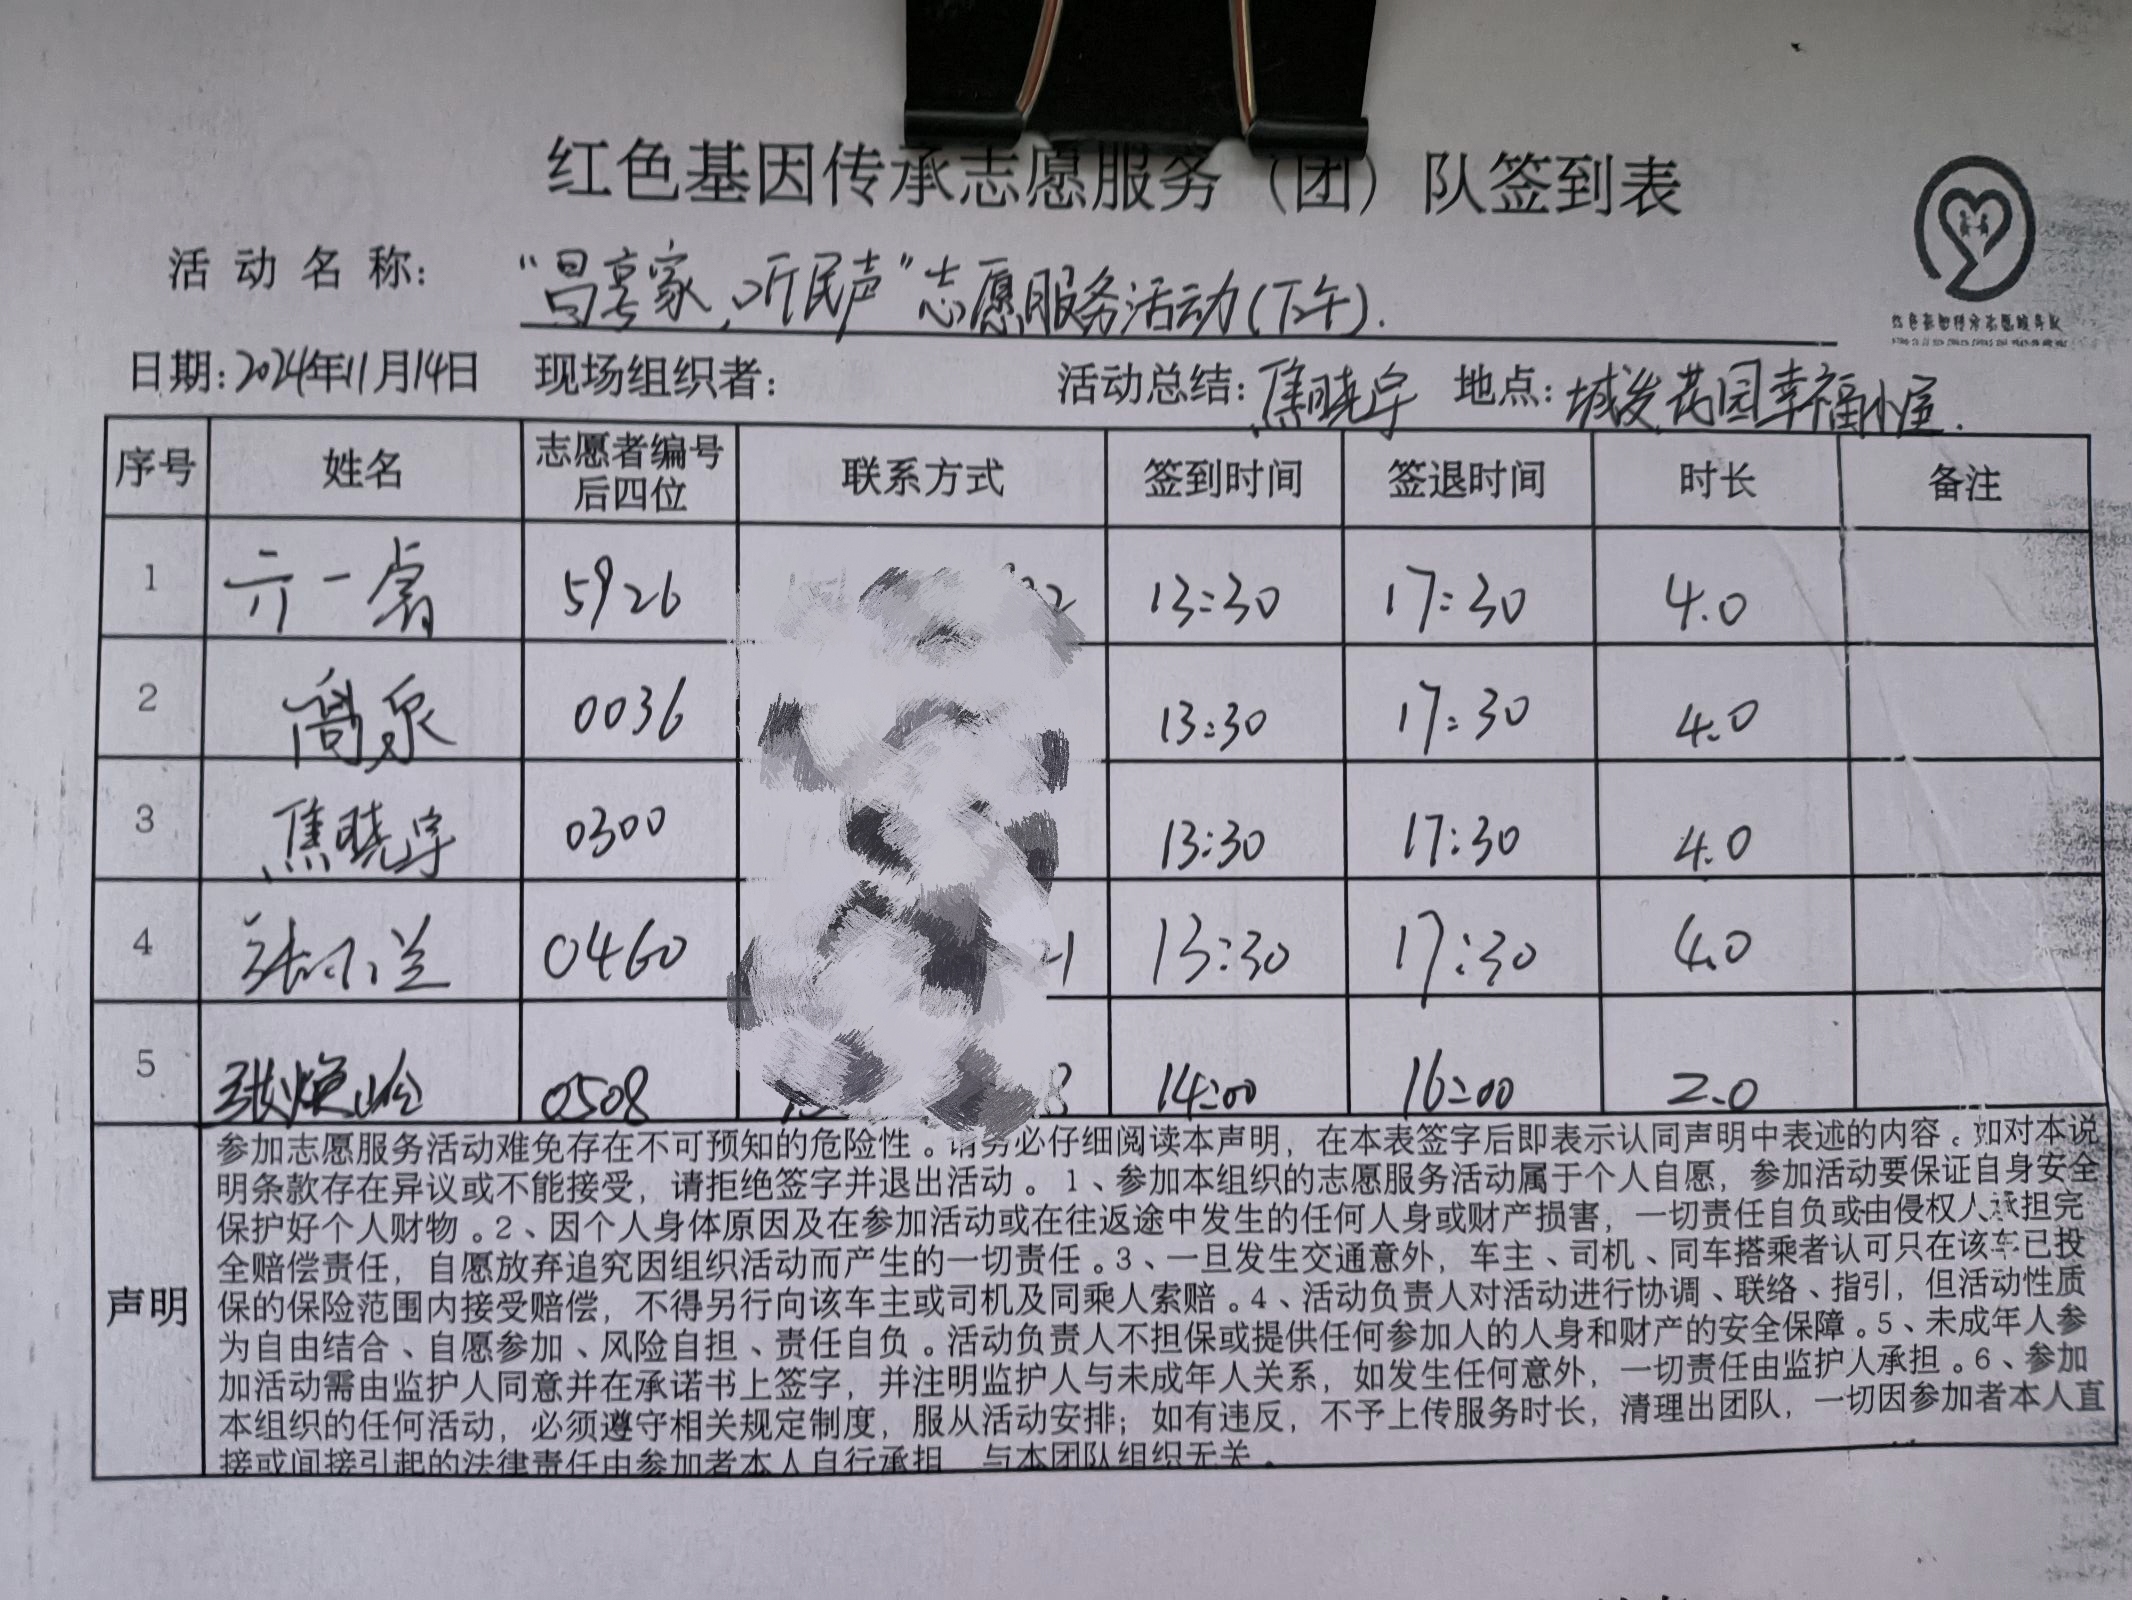 红色基因传承志愿服务（团）队签到表
活动名称： “昌享家，听民声”志愿服务活动(下午).
日期：2024年11月14日 现场组织者： 活动总结：焦晓宇 地点：城发花园幸福小屋.
序号 姓名 志愿者编号后四位 联系方式 签到时间 签退时间 时长 备注
1 亓一睿 5926 13:30 17:30 4.0
2 高泉 0036 13:30 17:30 4.0
3 焦晓宇 0300 13:30 17:30 4.0
4 张小兰 0460 13:30 17:30 4.0
5 张焕玲 0508 14:00 16:00 2.0
声明
参加志愿服务活动难免存在不可预知的危险性。请务必仔细阅读本声明，在本表签字后即表示认同声明中表述的内容。如对本说
明条款存在异议或不能接受，请拒绝签字并退出活动。1、参加本组织的志愿服务活动属于个人自愿，参加活动要保证自身安全
保护好个人财物。2、因个人身体原因及在参加活动或在往返途中发生的任何人身或财产损害，一切责任自负或由侵权人承担完
全赔偿责任，自愿放弃追究因组织活动而产生的一切责任。3、一旦发生交通意外，车主、司机、同车搭乘者认可只在该车已投
保的保险范围内接受赔偿，不得另行向该车主或司机及同乘人索赔。4、活动负责人对活动进行协调、联络、指引，但活动性质
为自由结合、自愿参加、风险自担、责任自负。活动负责人不担保或提供任何参加人的人身和财产的安全保障。5、未成年人参
加活动需由监护人同意并在承诺书上签字，并注明监护人与未成年人关系，如发生任何意外，一切责任由监护人承担。6、参加
本组织的任何活动，必须遵守相关规定制度，服从活动安排；如有违反，不予上传服务时长，清理出团队，一切因参加者本人直
接或间接引起的法律责任由参加者本人自行承担，与本团队组织无关。